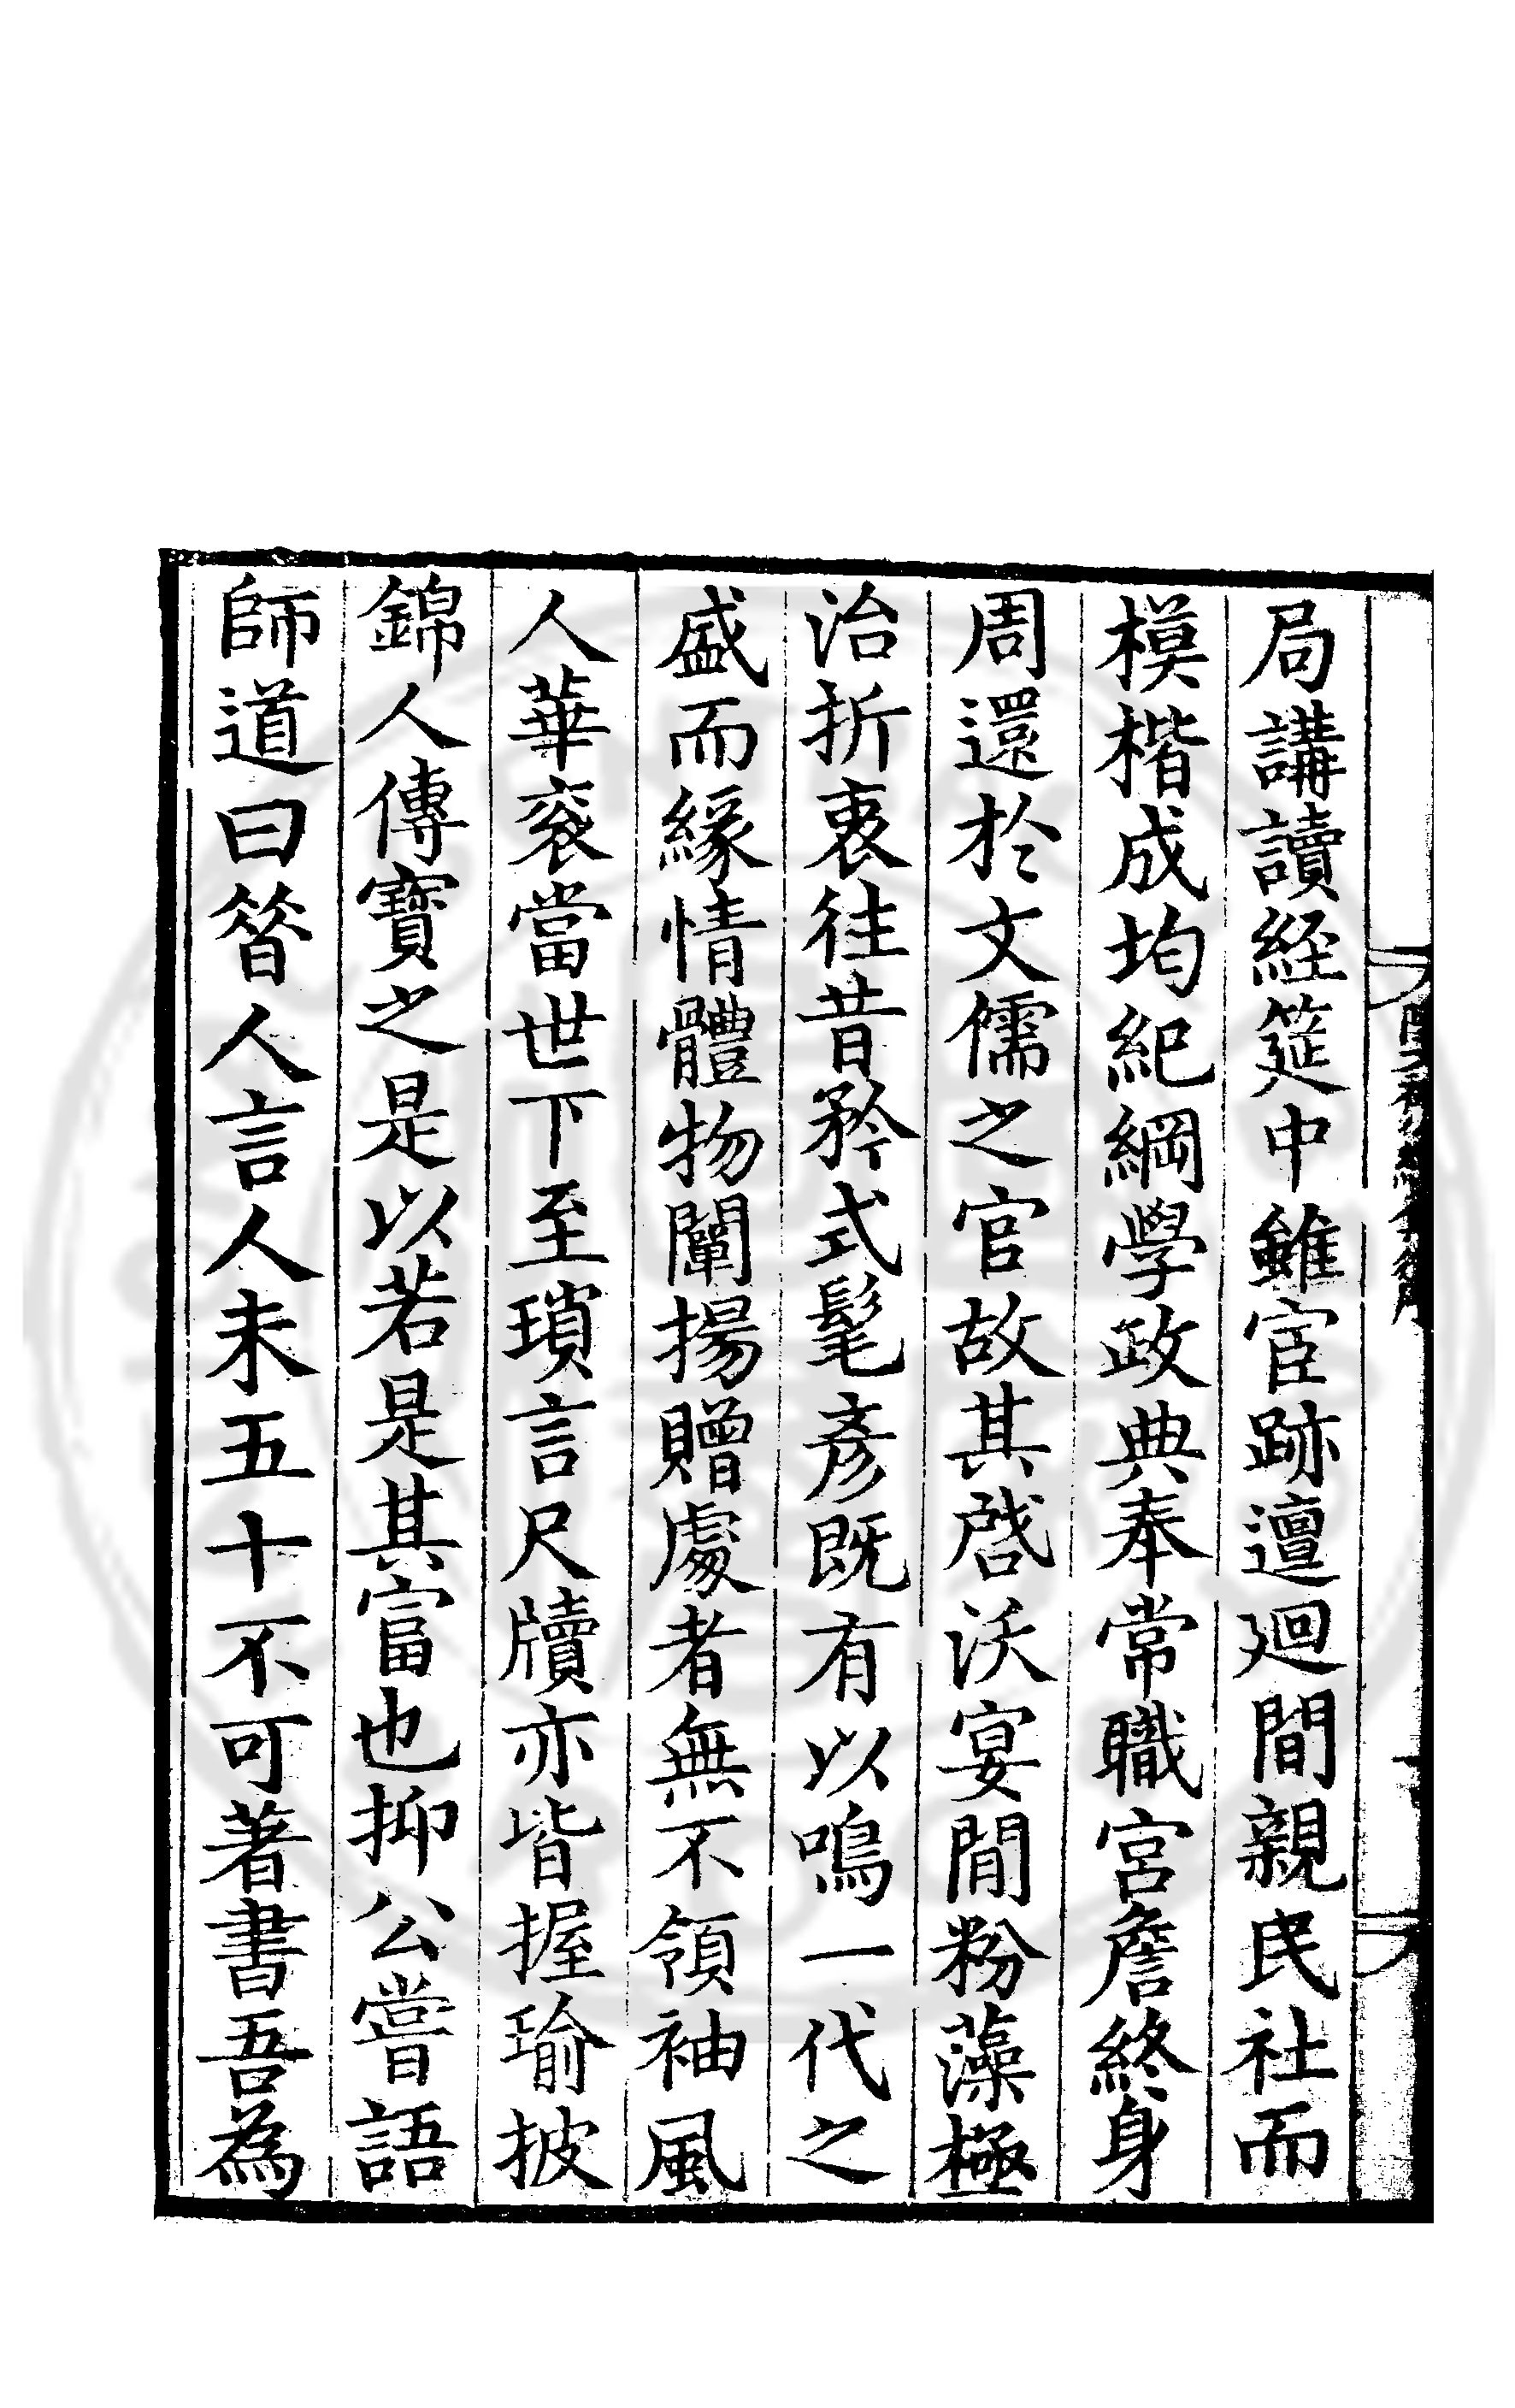 局講讀經筵中雖宦跡邅迴間親民社而
模楷成均紀綱學政典奉常職宮詹終身
周還於文儒之官故其啓沃宴閒粉藻極
治折衷往昔矜式髦彥既有以鳴一代之
盛而緣情體物闡揚贈處者無不領袖風
人華衮當世下至瑣言尺牘亦皆握瑜披
錦人傳寶之是以若是其富也抑公嘗語
師道曰昝人言人未五十不可著書吾為